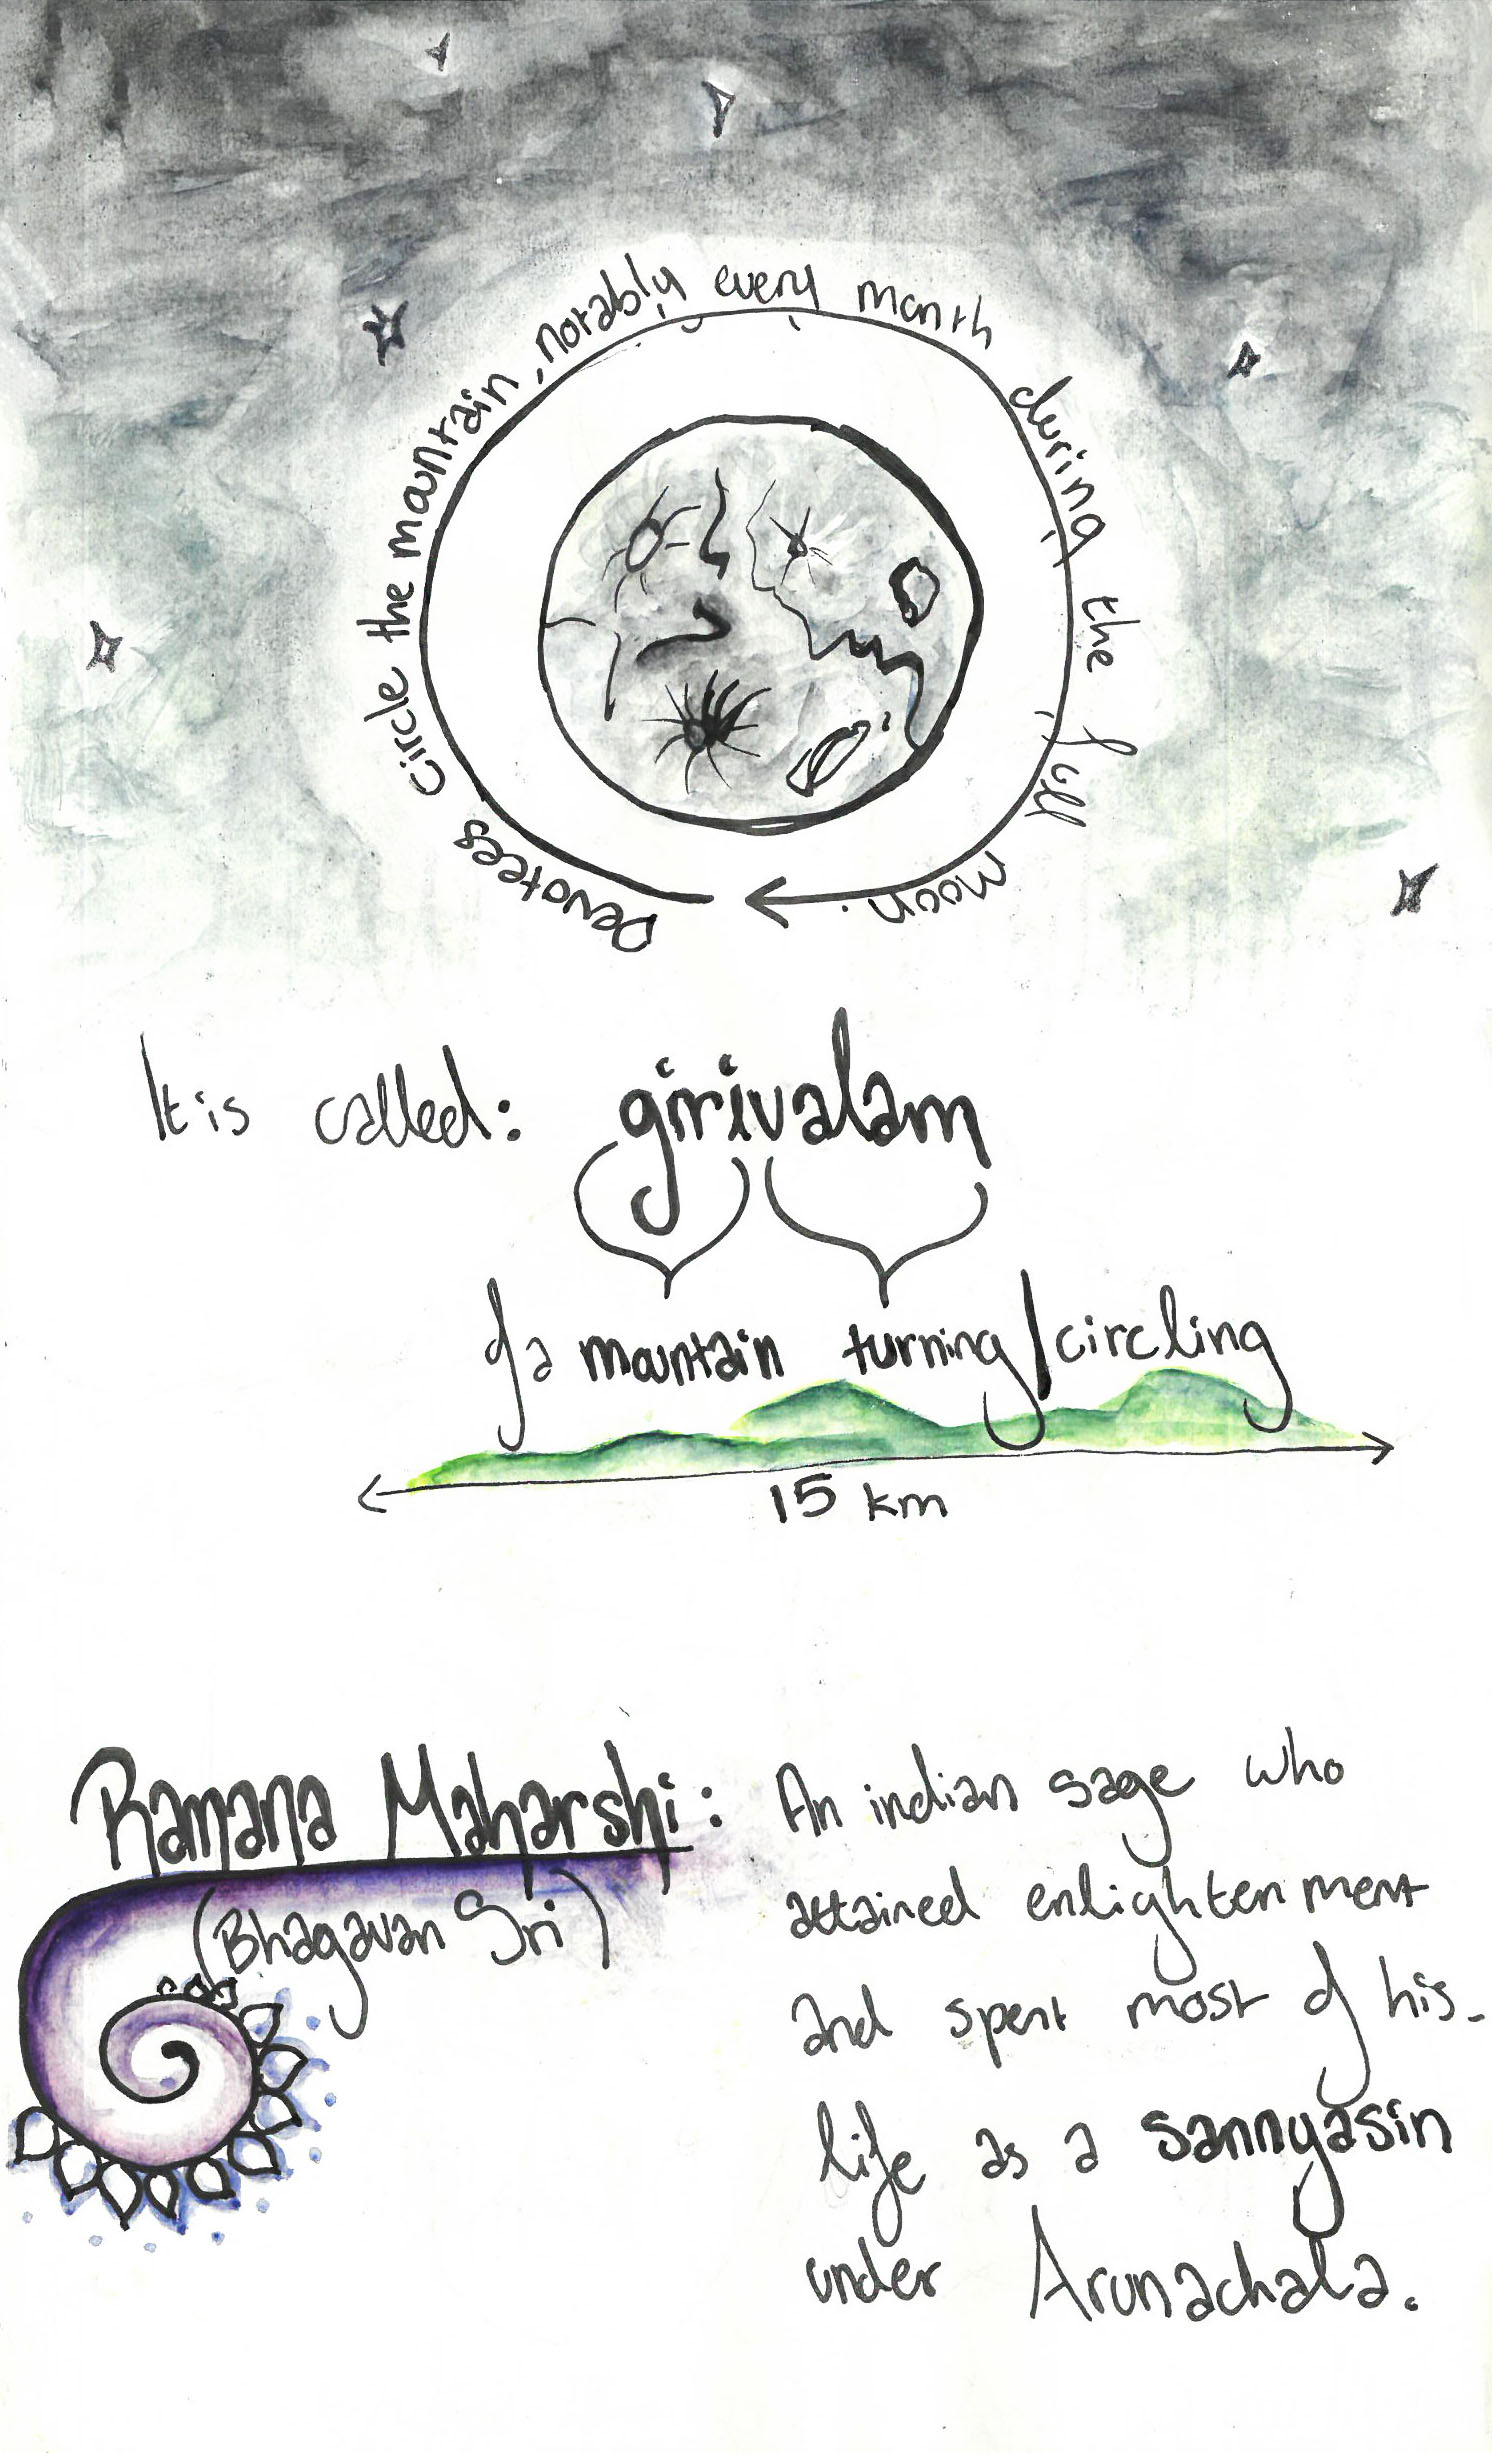 Devotees circle the mountain, notably every month during the full moon.
It is called: girivalam
of a mountain turning/circling
15 km
Ramana Maharshi:
(Bhagavan Sri)
An indian sage who
attained enlightenment
and spent most of his
life as a sannyasin
under Arunachala.